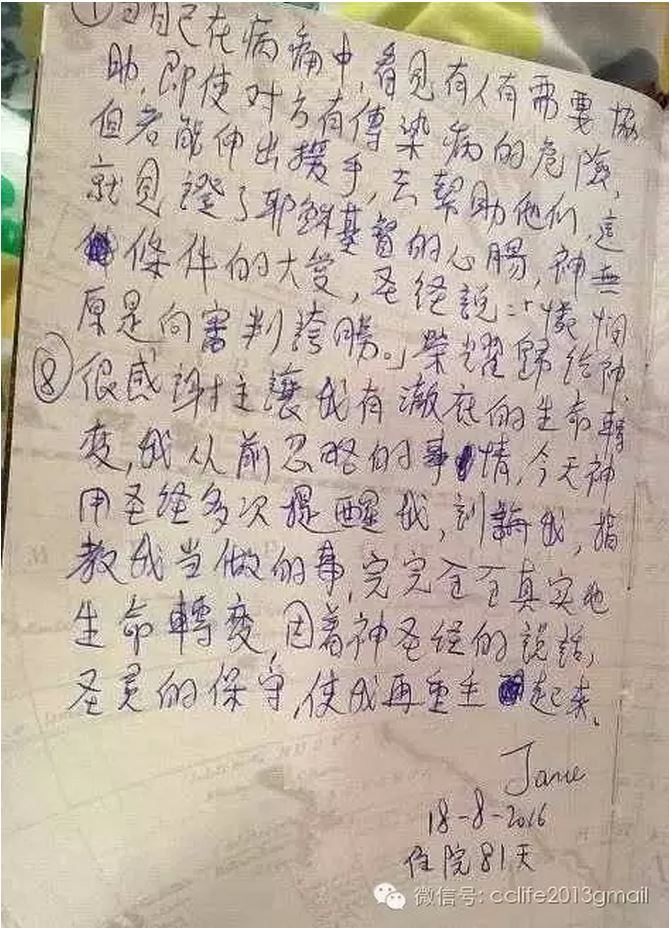 ①自己在病痛中,看見有人有需要協
助,即使对方有傳染病的危險,
但若能伸出援手,去幫助他們,
就見證了耶穌基督的心腸,這無
條件的大愛,圣经說:「憐憫
原是向審判誇勝。」榮耀歸给神
⑧很感謝主讓我有澈底的生命轉
变,我从前忽略的事情,今天神
用圣经多次提醒我,訓誨我,指
教我当做的事,完完全全真实地
生命轉变,因着神圣经的說話,
圣灵的保守,使我再重生起来。
Jane
18-8-2016
住院81天
微信号: cclife2013gmail